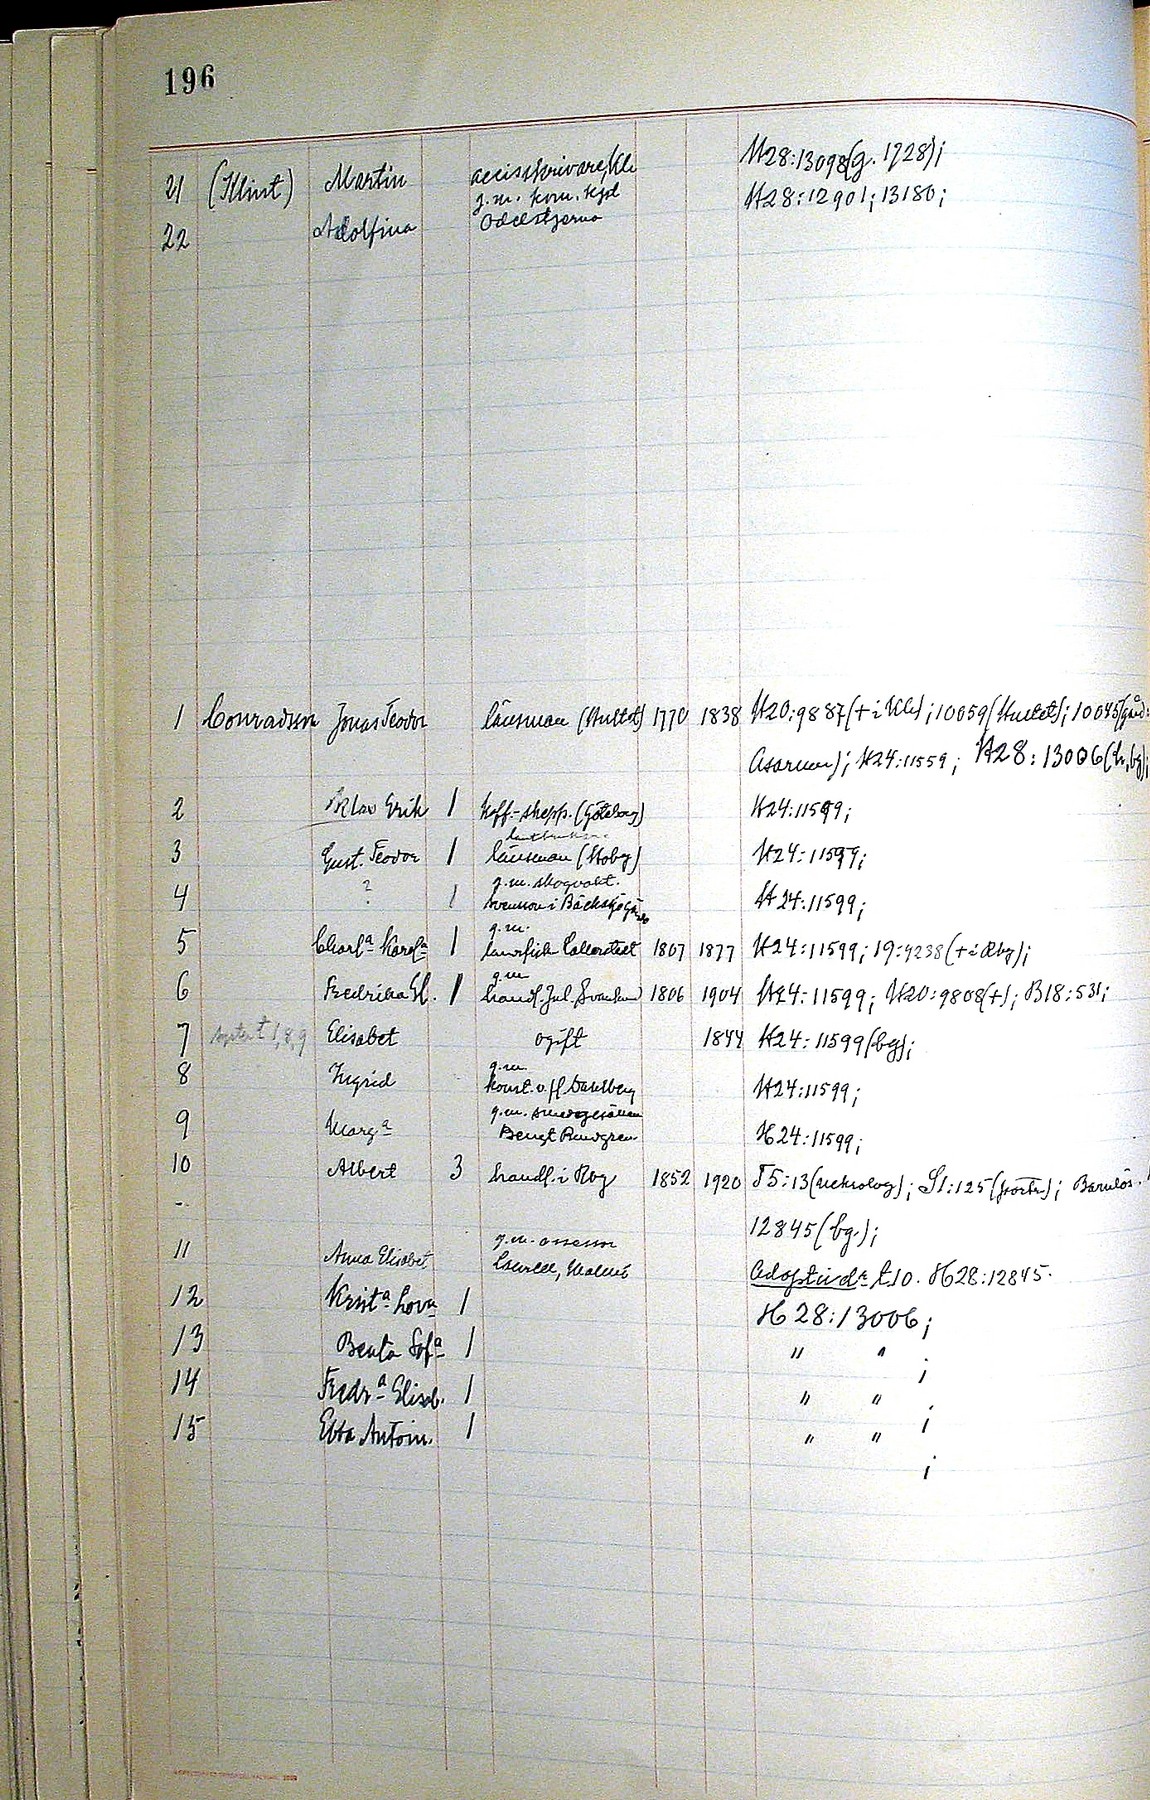 196
21 (Klint) Martin accisskrivare, Kli H28:13098(g. 1728);
22 Adolfina g.m. kom. kgd Odelstjerna H28:12901; 13180;
1 Conradson Jonas Teodor länsman 1770 1838 H20:9887(+ i Kli); 10059; 10045
Asarum); H24:11559; H28:13006(h, bg);
2 Klas Erik 1 koff.-skepp. (Göteborg) H24:11599;
3 Gust. Teodor 1 länsman (Stoby) H24:11599;
4 ? 1 g.m. skogvakt. Svensson i H24:11599;
5 Charl<sup>a</sup> Karol<sup>a</sup> 1 g.m. 1807 1877 H24:11599; 19:4238(+ i Rby);
6 Fredrika El. 1 g.m. handl. Jul. Svensson 1806 1904 H24:11599; H20:9808(+); B18:531;
7 syster t 1, 8, 9 Elisabet ogift 1844 H24:11599(bg);
8 Ingrid g.m. konst. v. Dahlberg H24:11599;
9 Marg<sup>a</sup> g.m. smedgesällen Bengt Rundgren H24:11599;
10 Albert 3 handl. i Rby 1852 1920 T5:13(nekrolog); S1:125; Barnlös.
- 12845(bg);
11 Anna Elisabet g.m. assessor Malmö Adoptivdr t 10. H28:12845.
12 Krist<sup>a</sup> Lova 1 H28:13006;
13 Beata Sof<sup>a</sup> 1 " " ;
14 Fredr<sup>a</sup> Elisab. 1 " " ;
15 Ebba Antoin. 1 " " ;